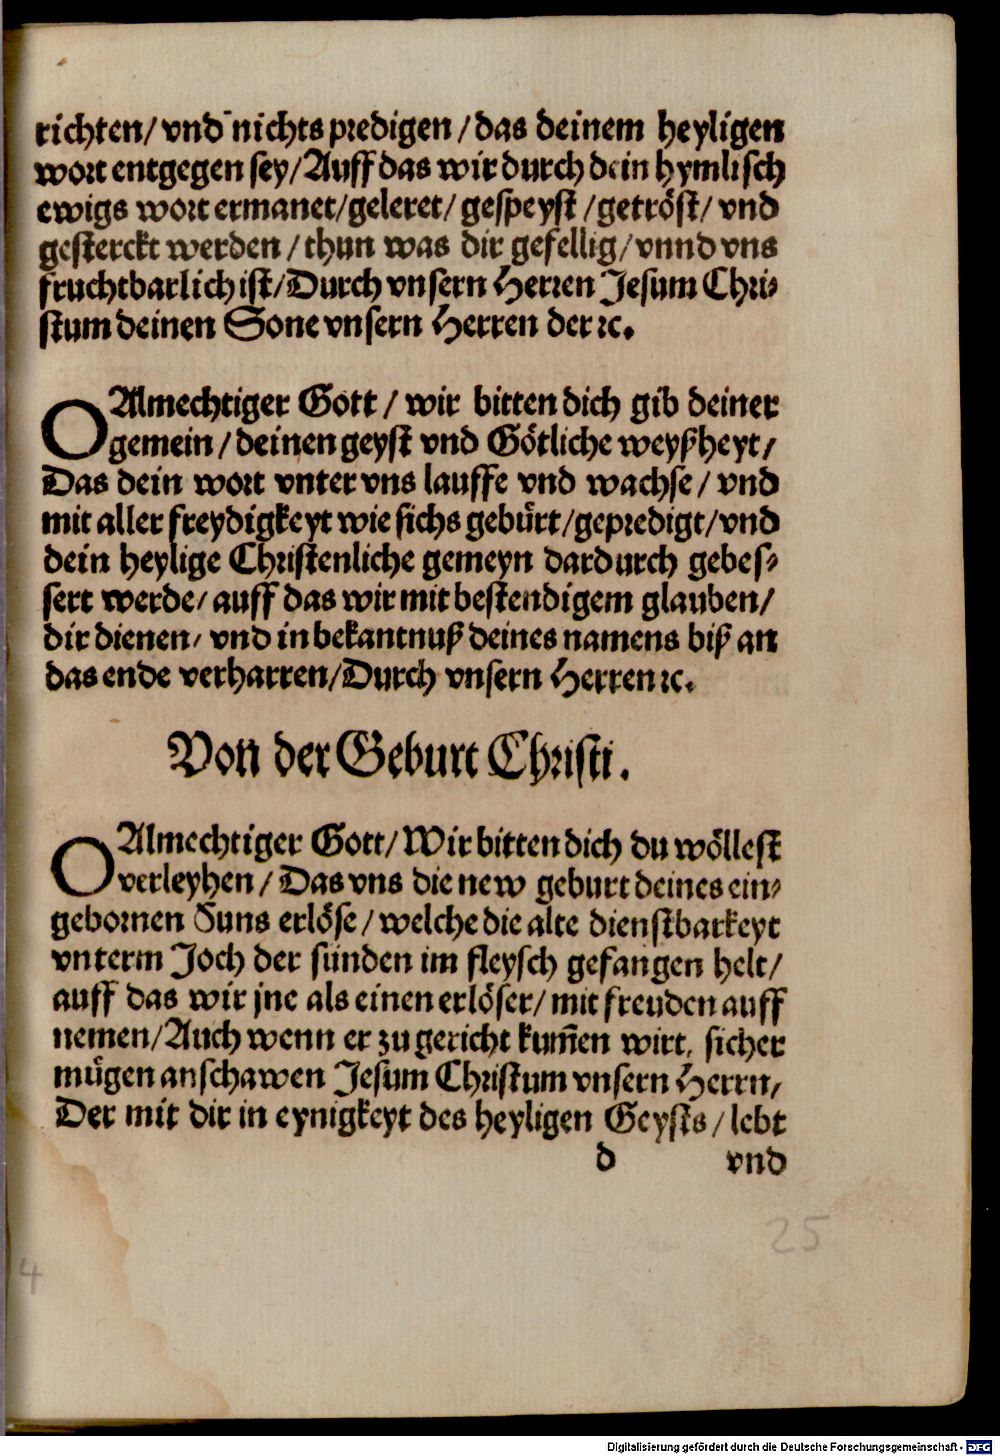 richten/ vnd nichts predigen/ das deinem heyligen
wort entgegen sey/ Auff das wir durch dein hymlisch
ewigs wort ermanet/ geleret/ gespeyst/ getröst/ vnd
gesterckt werden/ thun was dir gefellig/ vnnd vns
fruchtbarlich ist/ Durch vnsern Herren Jesum Chri-
stum deinen Sone vnsern Herren der ꝛc.
O Almechtiger Gott/ wir bitten dich gib deiner
gemein/ deinen geyst vnd Götliche weyßheyt/
Das dein wort vnter vns lauffe vnd wachse/ vnd
mit aller freydigkeyt wie sichs gebürt/ gepredigt/ vnd
dein heylige Christenliche gemeyn dardurch gebes-
sert werde/ auff das wir mit bestendigem glauben/
dir dienen/ vnd in bekantnuß deines namens biß an
das ende verharren/ Durch vnsern Herren ꝛc.
Von der Geburt Christi.
O Almechtiger Gott/ Wir bitten dich du wöllest
verleyhen/ Das vns die new geburt deines ein-
gebornen Suns erlöse/ welche die alte dienstbarkeyt
vnterm Joch der sünden im fleysch gefangen helt/
auff das wir jne als einen erlöser/ mit freuden auff
nemen/ Auch wenn er zu gericht kum̄en wirt, sicher
mügen anschawen Jesum Christum vnsern Herrn/
Der mit dir in eynigkeyt des heyligen Geysts/ lebt
d vnd
25
4
Digitalisierung gefördert durch die Deutsche Forschungsgemeinschaft - DFG